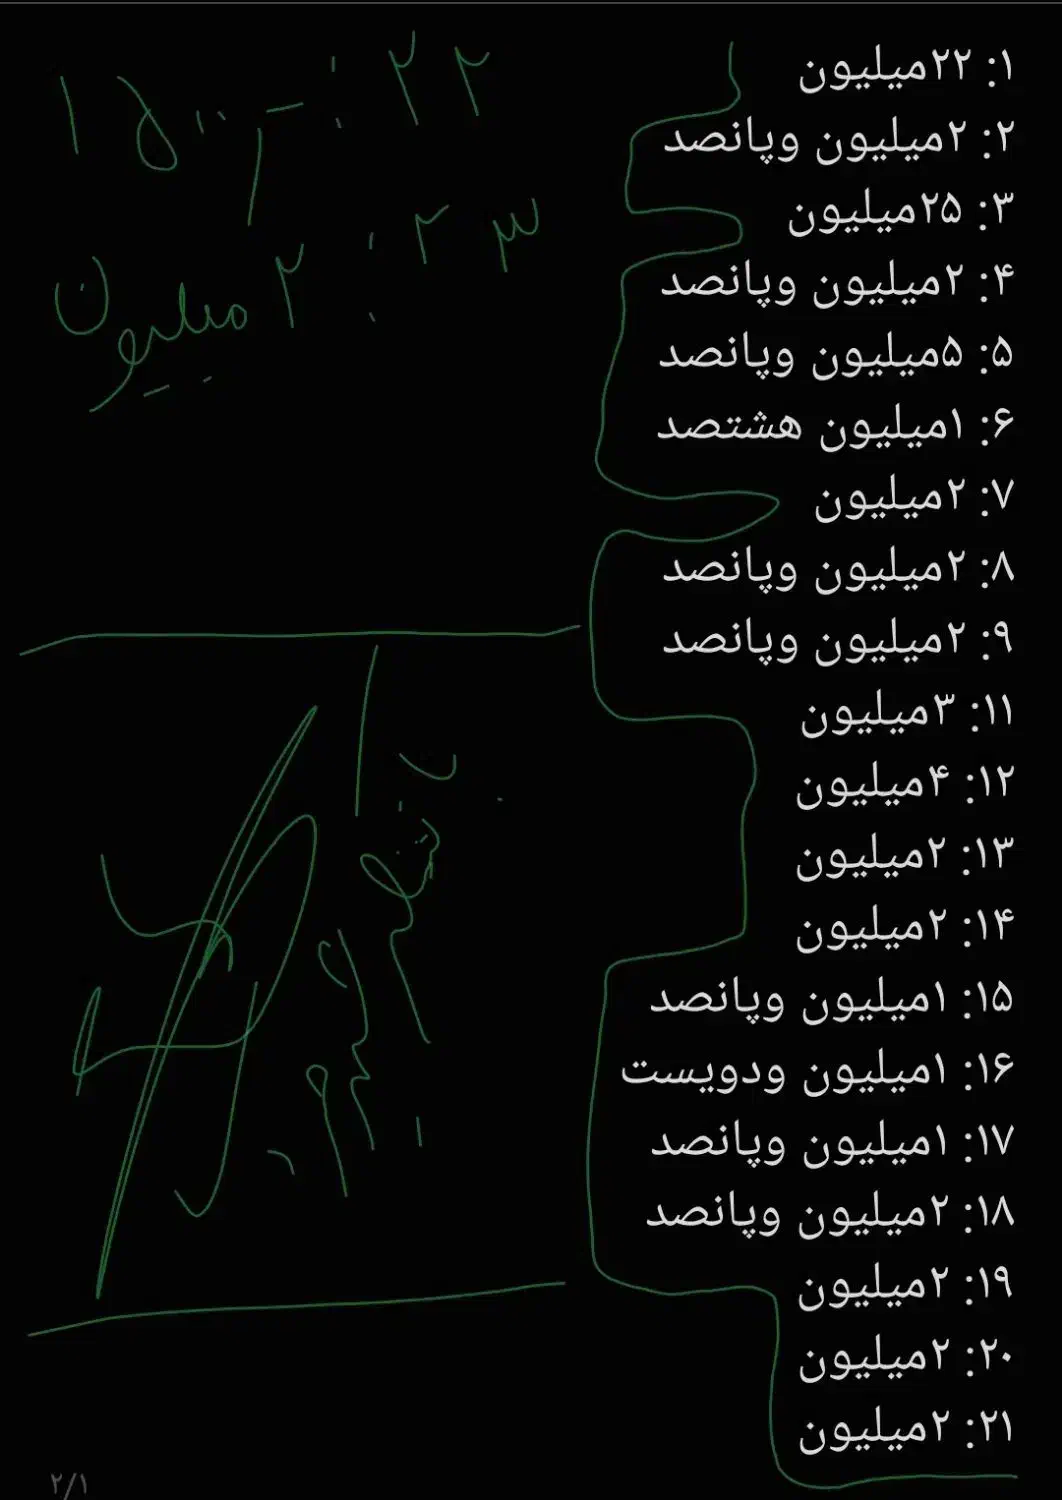 ۱: ۲۲میلیون
۲: ۲میلیون وپانصد
۳: ۲۵میلیون
۴: ۲میلیون وپانصد
۵: ۵میلیون وپانصد
۶: ۱میلیون هشتصد
۷: ۲میلیون
۸: ۲میلیون وپانصد
۹: ۲میلیون وپانصد
۱۱: ۳میلیون
۱۲: ۴میلیون
۱۳: ۲میلیون
۱۴: ۲میلیون
۱۵: ۱میلیون وپانصد
۱۶: ۱میلیون ودویست
۱۷: ۱میلیون وپانصد
۱۸: ۲میلیون وپانصد
۱۹: ۲میلیون
۲۰: ۲میلیون
۲۱: ۲میلیون
۲۳: ۲ میلیون
۲/۱